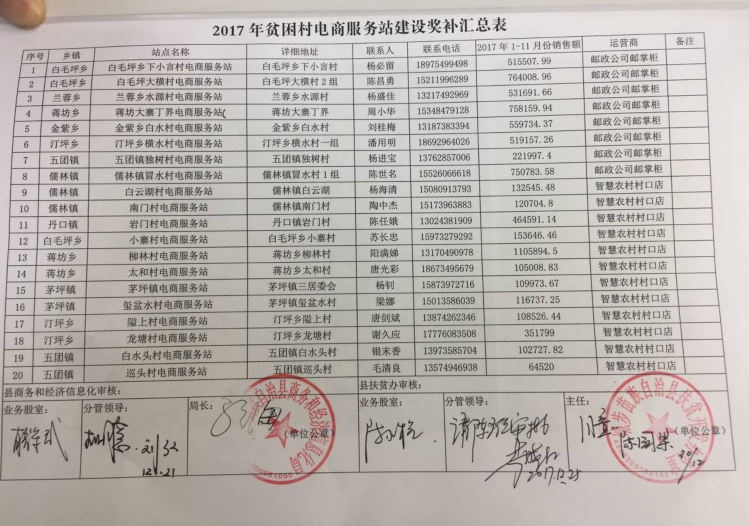 2017年贫困村电商服务站建设奖补汇总表
序号 乡镇 站点名称 详细地址 联系人 联系电话 2017年1-11月份销售额 运营商 备注
1 白毛坪乡 白毛坪乡下小言村电商服务站 白毛坪乡下小言村 杨必留 18975499498 515507.99 邮政公司邮掌柜
2 白毛坪乡 白毛坪大横村电商服务站 白毛坪大横村2组 陈昌勇 15211996289 764008.96 邮政公司邮掌柜
3 兰蓉乡 兰蓉乡水源村电商服务站 兰蓉乡水源村 杨盛佳 13217492969 531691.66 邮政公司邮掌柜
4 蒋坊乡 蒋坊大寨丁界电商服务站( 蒋坊大寨丁界 周小华 15348479128 758159.94 邮政公司邮掌柜
5 金紫乡 金紫乡白水村电商服务站 金紫乡白水村 刘桂梅 13187383394 559734.37 邮政公司邮掌柜
6 汀坪乡 汀坪乡横水村电商服务站 汀坪乡横水村一组 潘用明 18692964026 519157.26 邮政公司邮掌柜
7 五团镇 五团镇独树村电商服务站 五团镇独树村 杨进宝 13762857006 221997.4 邮政公司邮掌柜
8 儒林镇 儒林镇冒水村电商服务站 儒林镇冒水村1组 陈世名 15526066618 750783.58 邮政公司邮掌柜
9 儒林镇 白云湖村电商服务站 儒林镇白云湖 杨海清 15080913793 132545.48 智慧农村村口店
10 儒林镇 南门村电商服务站 儒林镇南门村 陶中杰 15173963883 120704.8 智慧农村村口店
11 丹口镇 岩门村电商服务站 丹口镇岩门村 陈任娥 13024381909 464591.14 智慧农村村口店
12 白毛坪乡 小寨村电商服务站 白毛坪乡小寨村 苏长忠 15973279292 153646.46 智慧农村村口店
13 蒋坊乡 柳林村电商服务站 蒋坊乡柳林村 阳满娣 13170490978 1105894.5 智慧农村村口店
14 蒋坊乡 太和村电商服务站 蒋坊乡太和村 唐光彩 18673495679 105008.83 智慧农村村口店
15 茅坪镇 茅坪镇电商服务站 茅坪镇三居委会 杨钊 15873972716 109973.67 智慧农村村口店
16 茅坪镇 玺盆水村电商服务站 茅坪镇玺盆水村 梁娜 15013586039 116737.25 智慧农村村口店
17 汀坪乡 隘上村电商服务站 汀坪乡隘上村 唐剑斌 13874262346 108526.44 智慧农村村口店
18 汀坪乡 龙塘村电商服务站 汀坪乡龙塘村 谢久应 17776083508 351799 智慧农村村口店
19 五团镇 白水头村电商服务站 五团镇白水头村 银末香 13973585704 102727.82 智慧农村村口店
20 五团镇 巡头村电商服务站 五团镇巡头村 毛清良 13574946938 64520 智慧农村村口店
县商务和经济信息化审核: 县扶贫办审核:
业务股室: 分管领导: 局长: 业务股室: 分管领导: 主任:
(单位公章) (单位公章)
12.21
2017.12.25